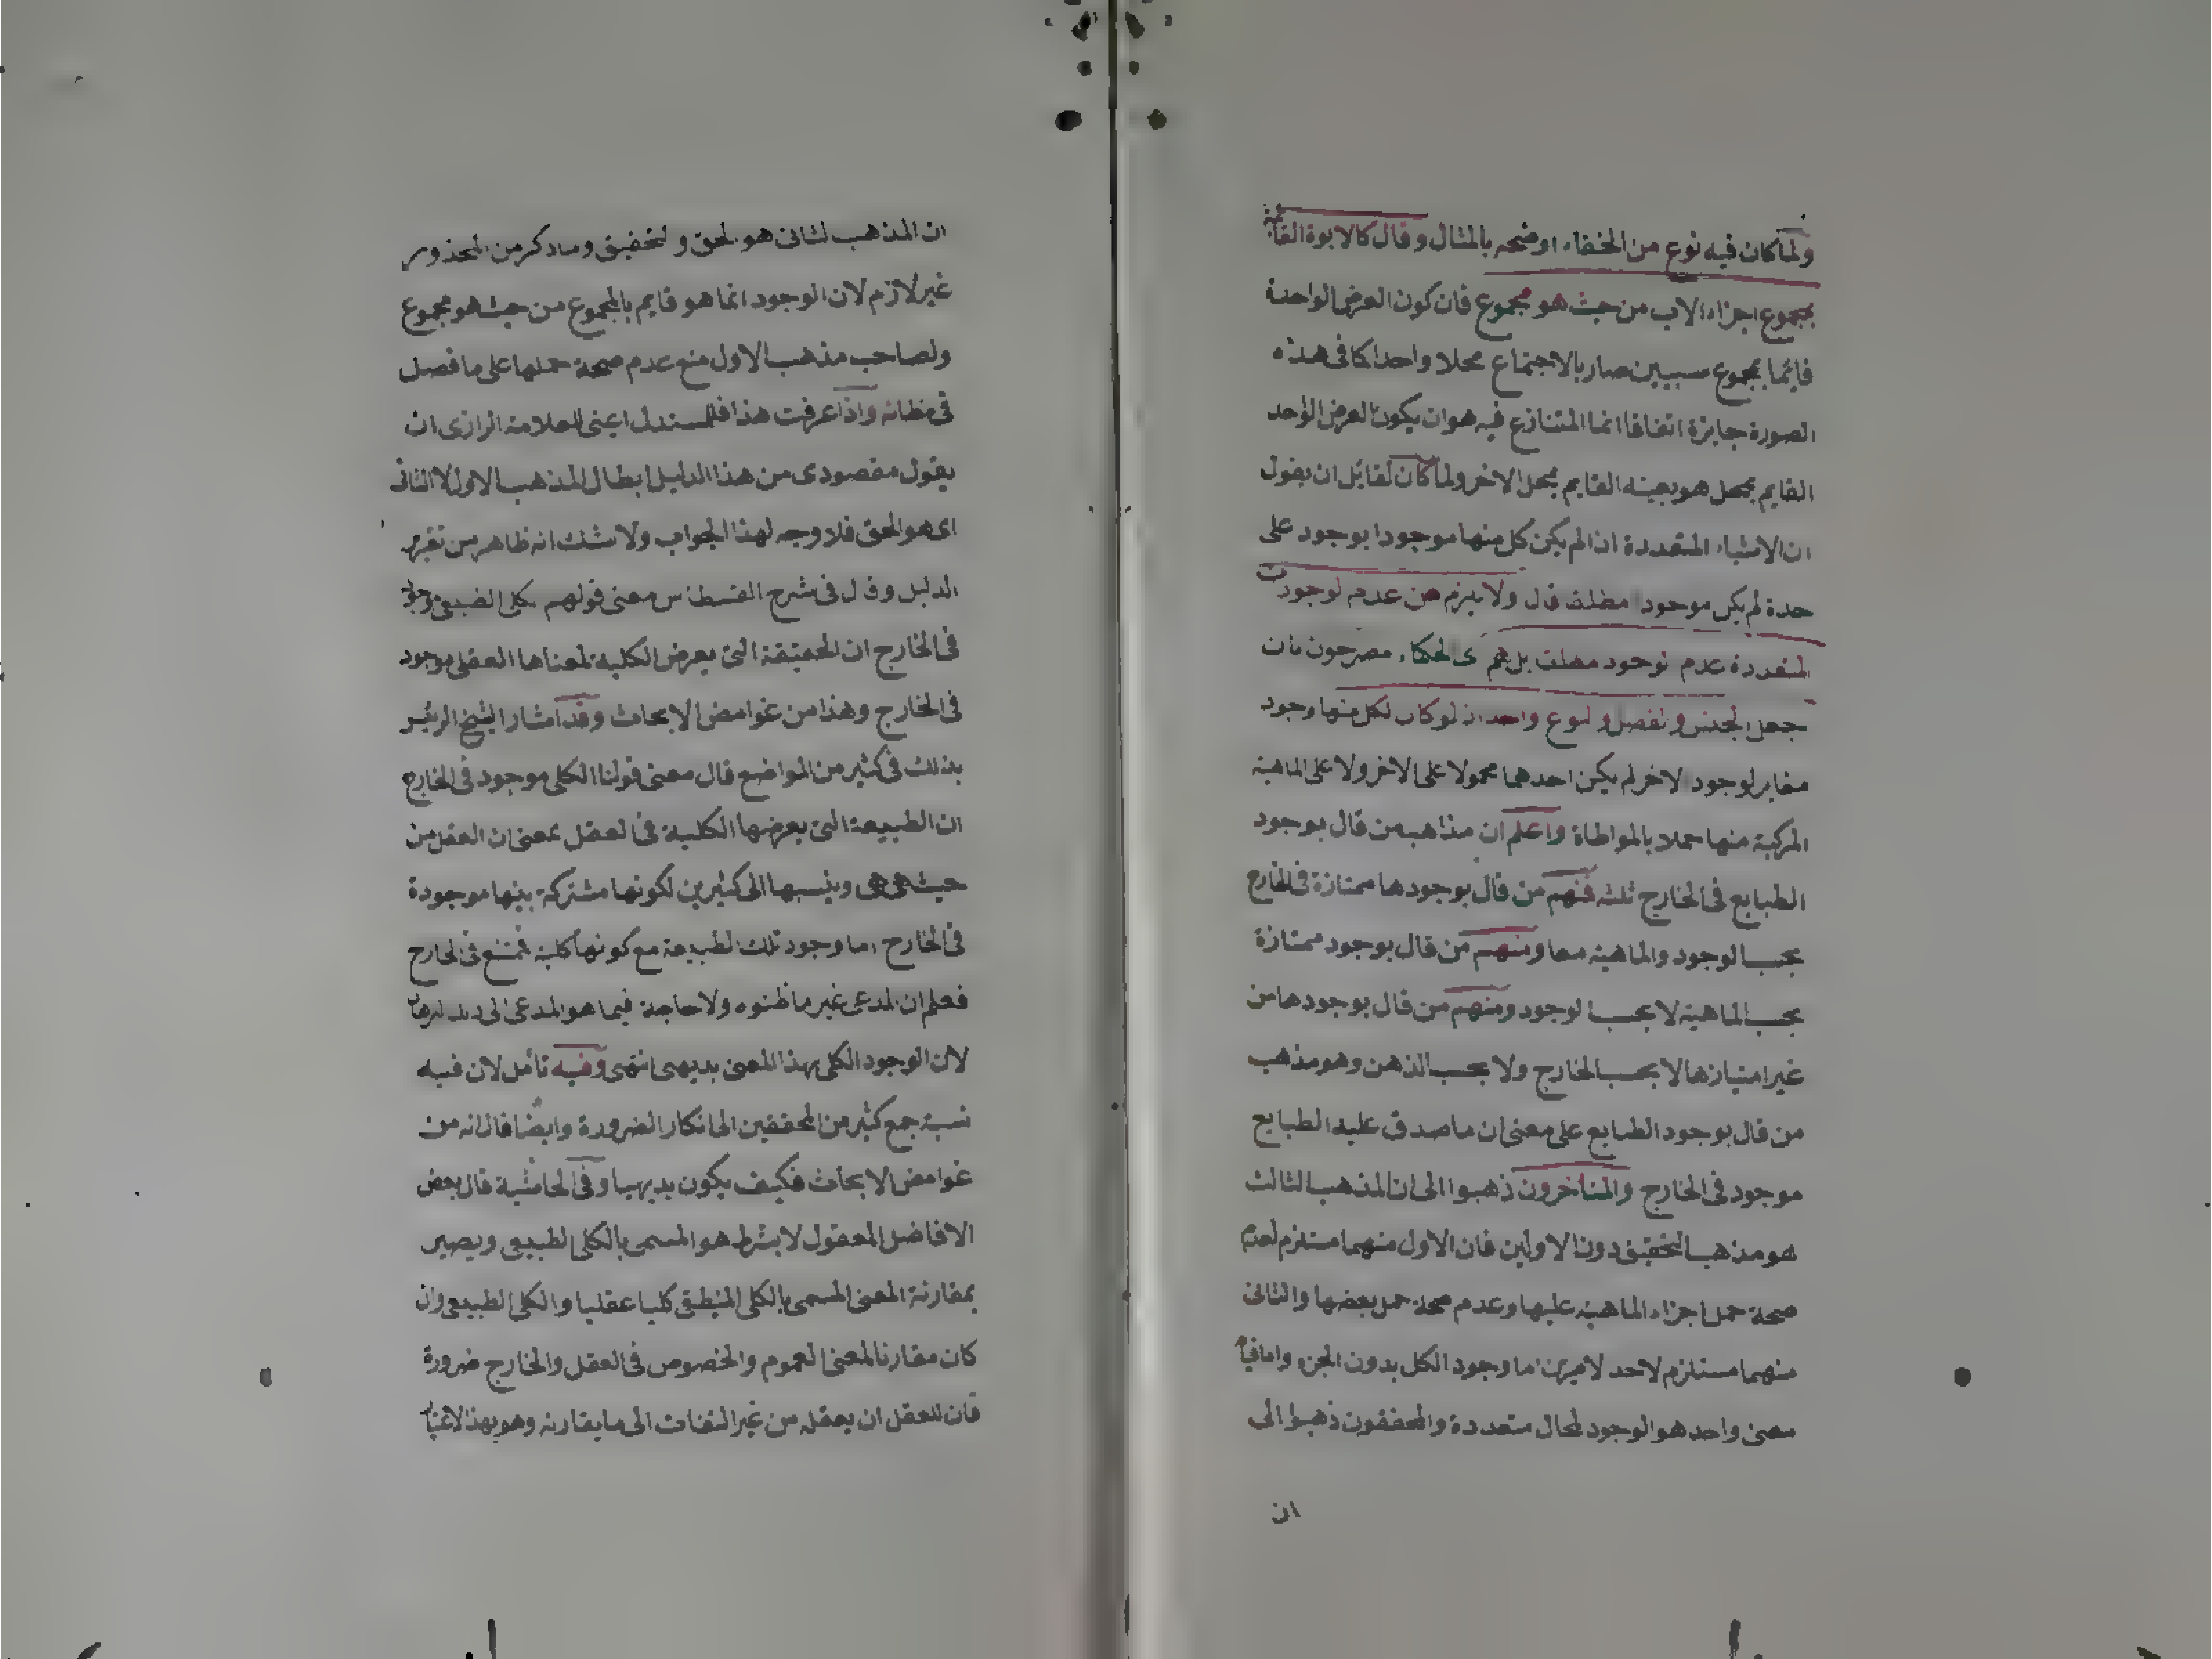 ولما كان فيه نوع من الخفاء اوضحه بالمثال وقال كالابوة القائمة
بمجموع اجزاء الاب من حيث هو مجموع فان كون العرض الواحدة
قائما بمجموع سببين صار بالاجتماع محلا واحدا كما فى هذه
الصورة جايزة اتفاقا انما المتنازع فيه هو ان يكون العرض الواحد
القايم بمحل هو بعينه القايم بمحل الاخر ولما كان لقائل ان يقول
ان الاشياء المتعددة اذا لم يكن كل منها موجودا بوجود على
حدة لم يكن موجودا مطلقا قال ولا يلزم من عدم الوجودات
المتعددة عدم الوجود مطلقا بل هم اى الحكماء مصرحون بان
جعل الجنس والفصل والنوع واحد اذ لو كان لكل منها وجود
مغاير لوجود الاخر لم يكن احدهما محمولا على الاخر ولا على الماهية
المركبة منها حملا بالمواطاة واعلم ان مذاهب من قال بوجود
الطبايع فى الخارج ثلثه فمنهم من قال بوجودها ممتازة فى الخارج
بحسب الوجود والماهية معا ومنهم من قال بوجود ممتازة
بحسب الماهية لا بحسب الوجود ومنهم من قال بوجودها من
غير امتيازها لا بحسب الخارج ولا بحسب الذهن وهو مذهب
من قال بوجود الطبايع على معنى ان ما صدق عليه الطبايع
موجود فى الخارج والمتاخرون ذهبوا الى ان المذهب الثالث
هو مذهب التحقيق دون الاولين فان الاول منهما مستلزم لعدم
صحة حمل اجزاء الماهية عليها وعدم صحة حمل بعضها والثانى
منهما مستلزم لاحد لامرين اما وجود الكل بدون الجزء واما قيام
معنى واحد هو الوجود لمحال متعددة والمحققون ذهبوا الى
ان
ان المذهب الثانى هو الحق والتحقيق وما ذكر من المحذور
غير لازم لان الوجود انما هو قايم بالمجموع من حيث هو مجموع
ولصاحب مذهب الاول منع عدم صحة حملها على ما فصل
فى مظانه واذا عرفت هذا فللمستدل اعنى العلامة الرازى ان
يقول مقصودى من هذا الدليل ابطال المذهب الاول لا الثانى
اى هو الحق فلا وجه لهذا الجواب ولا شك انه ظاهر من تقرير
الدليل وقال فى شرح القسطاس معنى قولهم الكلى الطبيعى موجود
فى الخارج ان الحقيقة التى يعرض الكلية لمعناها العقلى موجود
فى الخارج وهذا من غوامض الابحاث وقد اشار الشيخ الرئيس
بذلك فى كثير من المواضع قال معنى قولنا الكلى موجود فى الخارج
ان الطبيعة التى يعرضها الكلية فى العقل بمعنى ان العقل من
حيث هى هى وينسبها الى كثيرين لكونها مشتركة بينها موجودة
فى الخارج اما وجود تلك الطبيعة مع كونها كلية فممتنع فى الخارج
فعلم ان المدعى غير ما ظنوه ولا حاجة فيما هو المدعى الى
لان الوجود الكلى بهذا المعنى بديهى انتهى وفيه تأمل لان فيه
نسبة جمع كثير من المحققين الى انكار الضرورة وايضا قال انه من
غوامض الابحاث فكيف يكون بديهيا وفى الحاشية قال بعض
الافاضل المعقول لا بشرط هو المسمى بالكلى الطبيعى ويصير
بمقارنة المعنى المسمى بالكلى المنطقى كليا عقليا والكلى الطبيعى وان
كان مقارنا لمعنى العموم والخصوص فى العقل والخارج ضرورة
فان للعقل ان يعقله من غير التفات الى ما يقارنه وهو بهذا الاعتبار